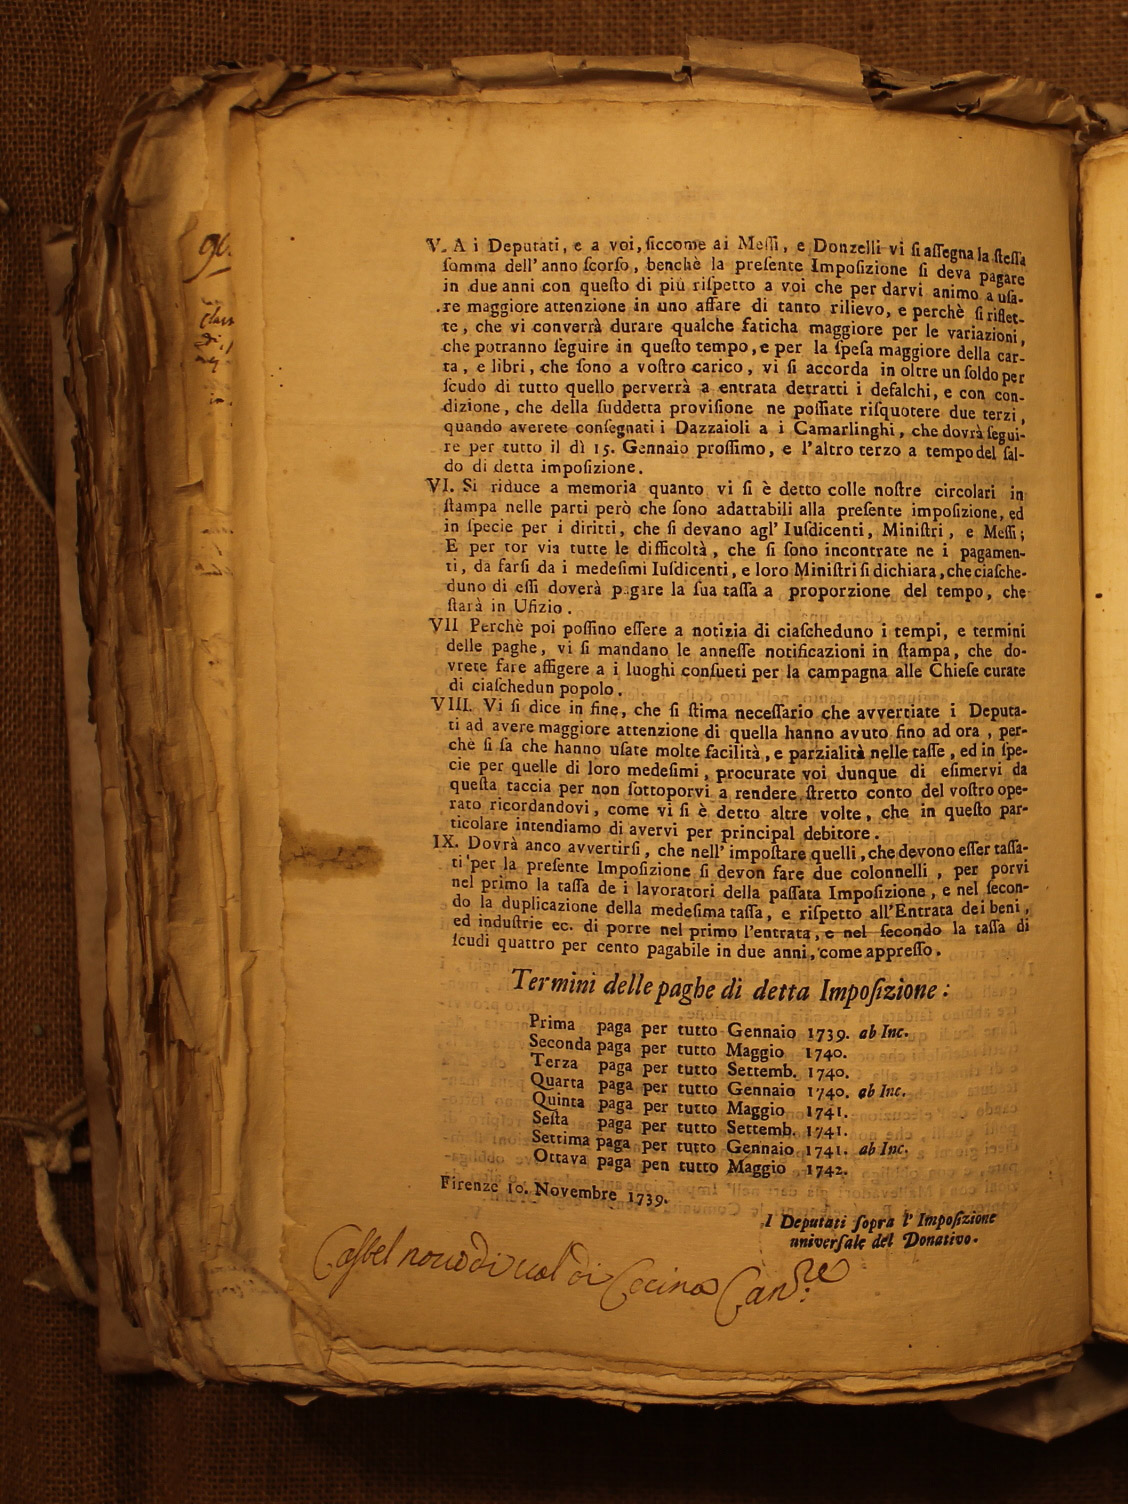 V. A i Deputati, e a voi, ſiccome ai Meſſi, e Donzelli vi ſi aſſegna la ſteſſa
ſomma dell' anno ſcorſo, benchè la preſente Impoſizione ſi deva pagare
in due anni con queſto di più riſpetto a voi che per darvi animo a uſa-
re maggiore attenzione in uno affare di tanto rilievo, e perchè ſi riflet-
te, che vi converrà durare qualche faticha maggiore per le variazioni,
che potranno ſeguire in queſto tempo, e per la ſpeſa maggiore della car-
ta, e libri, che ſono a voſtro carico, vi ſi accorda in oltre un ſoldo per
ſcudo di tutto quello perverrà a entrata detratti i defalchi, e con con-
dizione, che della ſuddetta proviſione ne poſſiate riſquotere due terzi,
quando averete conſegnati i Dazzaioli a i Camarlinghi, che dovrà ſegui-
re per tutto il dì 15. Gennaio proſſimo, e l'altro terzo a tempo del ſal-
do di detta impoſizione.
VI. Si riduce a memoria quanto vi ſi è detto colle noſtre circolari in
ſtampa nelle parti però che ſono adattabili alla preſente impoſizione, ed
in ſpecie per i diritti, che ſi devano agl' Iuſdicenti, Miniſtri, e Meſſi;
E per tor via tutte le difficoltà, che ſi ſono incontrate ne i pagamen-
ti, da farſi da i medeſimi Iuſdicenti, e loro Miniſtri ſi dichiara, che ciaſche-
duno di eſſi doverà pagare la ſua taſſa a proporzione del tempo, che
ſtarà in Ufizio.
VII Perchè poi poſſino eſſere a notizia di ciaſcheduno i tempi, e termini
delle paghe, vi ſi mandano le anneſſe notificazioni in ſtampa, che do-
vrete fare affigere a i luoghi conſueti per la campagna alle Chieſe curate
di ciaſchedun popolo.
VIII. Vi ſi dice in fine, che ſi ſtima neceſſario che avvertiate i Deputa-
ti ad avere maggiore attenzione di quella hanno avuto fino ad ora, per-
chè ſi ſa che hanno uſate molte facilità, e parzialità nelle taſſe, ed in ſpe-
cie per quelle di loro medeſimi, procurate voi dunque di eſimervi da
queſta taccia per non ſottoporvi a rendere ſtretto conto del voſtro ope-
rato ricordandovi, come vi ſi è detto altre volte, che in queſto par-
ticolare intendiamo di avervi per principal debitore.
IX. Dovrà anco avvertirſi, che nell' impoſtare quelli, che devono eſſer taſſa-
ti per la preſente Impoſizione ſi devon fare due colonnelli, per porvi
nel primo la taſſa de i lavoratori della paſſata Impoſizione, e nel ſecon-
do la duplicazione della medeſima taſſa, e riſpetto all'Entrata dei beni,
ed induſtrie ec. di porre nel primo l'entrata, e nel ſecondo la taſſa di
ſcudi quattro per cento pagabile in due anni, come appreſſo.
Termini delle paghe di detta Impoſizione:
Prima paga per tutto Gennaio 1739. ab Inc.
Seconda paga per tutto Maggio 1740.
Terza paga per tutto Settemb. 1740.
Quarta paga per tutto Gennaio 1740. ab Inc.
Quinta paga per tutto Maggio 1741.
Seſta paga per tutto Settemb. 1741.
Settima paga per tutto Gennaio 1741. ab Inc.
Ottava paga pen tutto Maggio 1742.
Firenze 10. Novembre 1739.
I Deputati ſopra l' Impoſizione
univerſale del Donativo.
Caſtel nouo di ual di Cecina Canre